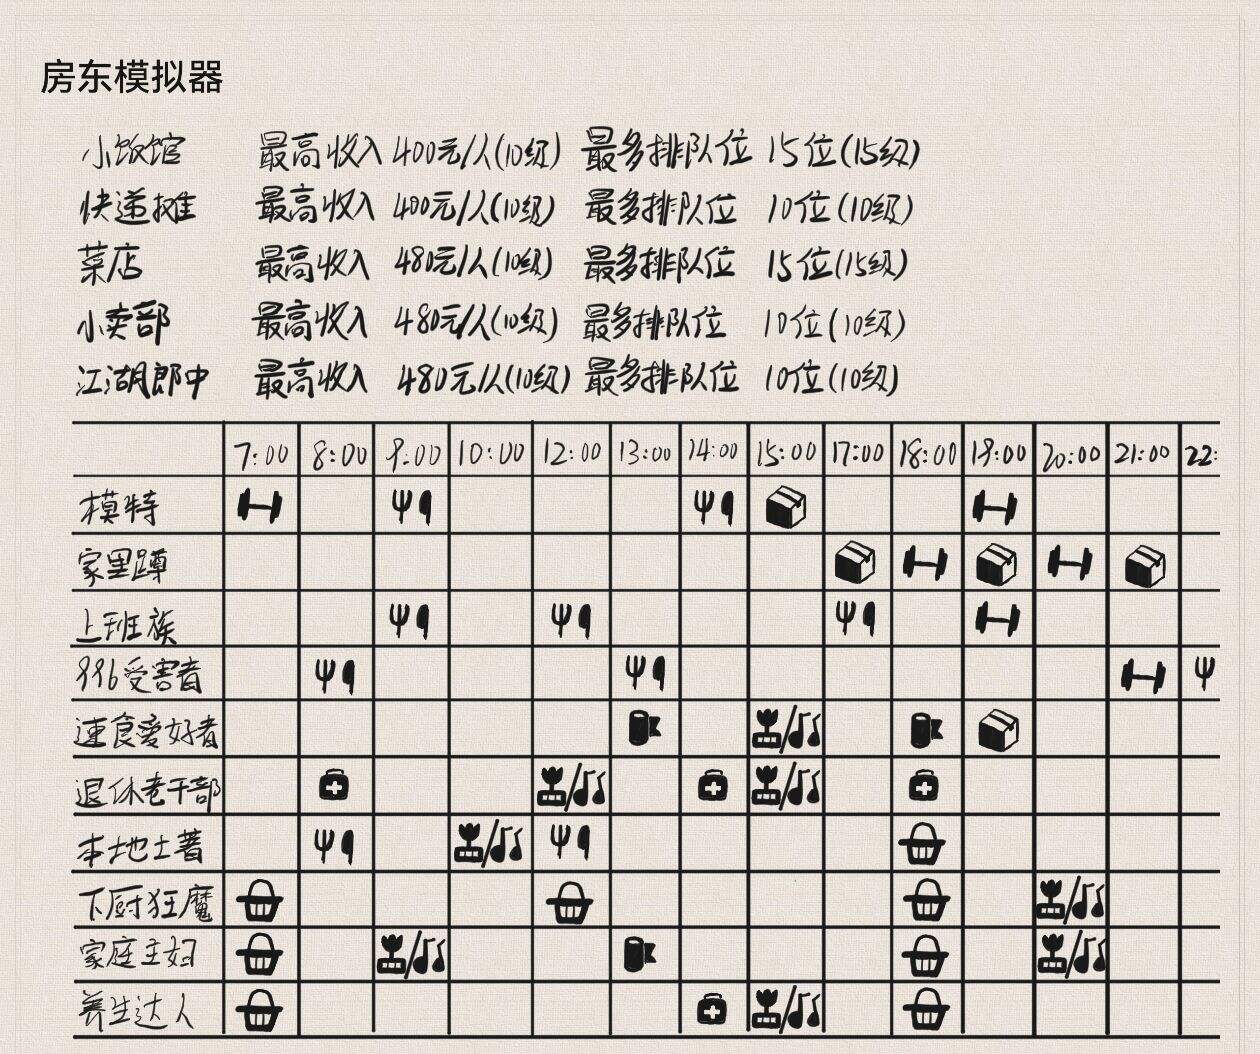 房东模拟器
小饭馆 最高收入 400元/人(10级) 最多排队位 15位(15级)
快递摊 最高收入 400元/人(10级) 最多排队位 10位(10级)
菜店 最高收入 480元/人(10级) 最多排队位 15位(15级)
小卖部 最高收入 480元/人(10级) 最多排队位 10位(10级)
江湖郎中 最高收入 480元/人(10级) 最多排队位 10位(10级)
7:00 8:00 9:00 10:00 12:00 13:00 14:00 15:00 17:00 18:00 19:00 20:00 21:00 22:
模特
家里蹲
上班族
996受害者
速食爱好者
退休老干部
本地土著
下厨狂魔
家庭主妇
养生达人